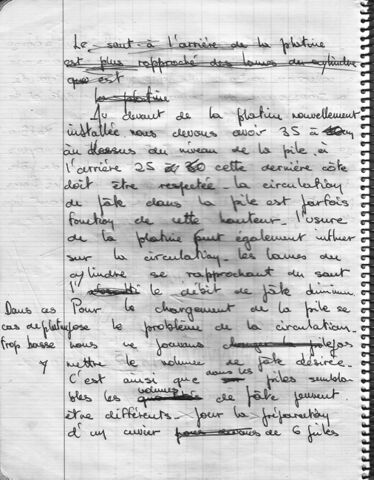 Le saut à l'arrière de la platine
est plus rapproché des lames du cylindre
que est
la platine
Au devant de la platine nouvellement
installée nous devons avoir 35 à
au dessus du niveau de la pile, à
l'arrière 25 à 30 cette dernière côte
doit être respectée. la circulation
de pâte dans la pile est parfois
fonction de cette hauteur. l'usure
de la platine peut également influer
sur la circulation. les lames du
cylindre se rapprochant du saut
l' le débit de pâte diminue
Dans ces Pour le chargement de la pile se
cas de platine pose le problème de la circulation.
trop basse nous ne pouvons charger la pile pas
mettre le volume de pâte désirée.
C'est ainsi que dans les piles sembla-
bles les volumes de pâte peuvent
être différents. pour la préparation
d'un cuvier de 6 piles